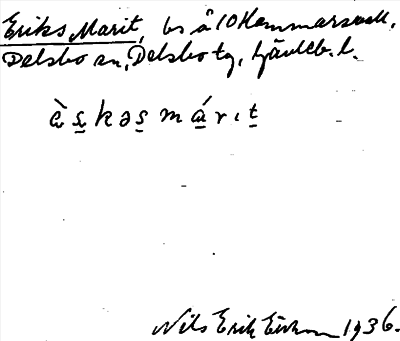 Eriks Marit, bs å 10 Hammarsvall,
Delsbo sn, Delsbo tg, Gävleb. l.
ὲs̱kəs̱ má̱rıṯ
Nils Erik 1936.